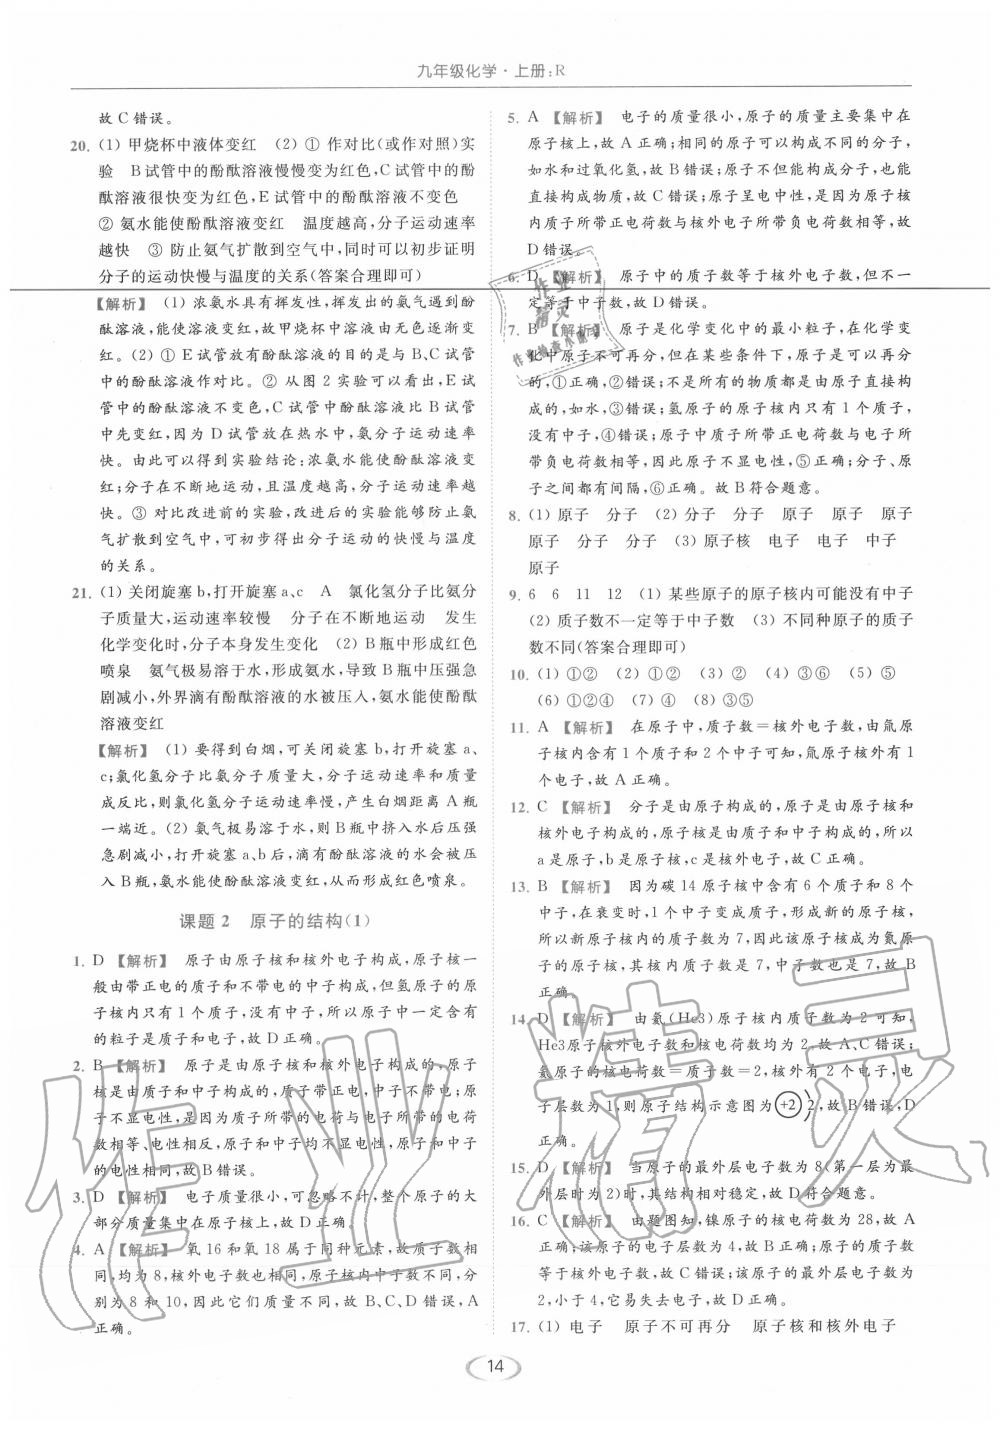 九年级化学·上册:R
故 C 错误。
20. (1) 甲烧杯中液体变红 (2) ① 作对比(或作对照)实
验 B试管中的酚酞溶液慢慢变为红色,C试管中的酚
酞溶液很快变为红色,E试管中的酚酞溶液不变色
② 氨水能使酚酞溶液变红 温度越高,分子运动速率
越快 ③ 防止氨气扩散到空气中,同时可以初步证明
分子的运动快慢与温度的关系(答案合理即可)
【解析】 (1) 浓氨水具有挥发性,挥发出的氨气遇到酚
酞溶液,能使溶液变红,故甲烧杯中溶液由无色逐渐变
红。(2) ① E试管放有酚酞溶液的目的是与B、C试管
中的酚酞溶液作对比。② 从图 2 实验可以看出,E试
管中的酚酞溶液不变色,C试管中酚酞溶液比B试管
中先变红,因为 D 试管放在热水中,氨分子运动速率
快。由此可以得到实验结论:浓氨水能使酚酞溶液变
红;分子在不断地运动,且温度越高,分子运动速率越
快。③ 对比改进前的实验,改进后的实验能够防止氨
气扩散到空气中,可初步得出分子运动的快慢与温度
的关系。
21. (1) 关闭旋塞 b,打开旋塞 a、c A 氯化氢分子比氨分
子质量大,运动速率较慢 分子在不断地运动 发生
化学变化时,分子本身发生变化 (2) B 瓶中形成红色
喷泉 氨气极易溶于水,形成氨水,导致 B 瓶中压强急
剧减小,外界滴有酚酞溶液的水被压入,氨水能使酚酞
溶液变红
【解析】 (1) 要得到白烟,可关闭旋塞 b,打开旋塞 a、
c;氯化氢分子比氨分子质量大,分子运动速率和质量
成反比,则氯化氢分子运动速率慢,产生白烟距离 A 瓶
一端近。(2) 氨气极易溶于水,则 B 瓶中挤入水后压强
急剧减小,打开旋塞 a、b后,滴有酚酞溶液的水会被压
入 B 瓶,氨水能使酚酞溶液变红,从而形成红色喷泉。
课题 2 原子的结构(1)
1. D 【解析】 原子由原子核和核外电子构成,原子核一
般由带正电的质子和不带电的中子构成,但氢原子的原
子核内只有1个质子,没有中子,所以原子中一定含有
的粒子是质子与电子,故 D 正确。
2. B 【解析】 原子是由原子核和核外电子构成的,原子
核是由质子和中子构成的,质子带正电,中子不带电;原
子不显电性,是因为质子所带的电荷与电子所带的电荷
数相等、电性相反,原子和中子均不显电性,原子和中子
的电性相同,故 B 错误。
3. D 【解析】 电子质量很小,可忽略不计,整个原子的大
部分质量集中在原子核上,故 D 正确。
4. A 【解析】 氧 16 和氧 18 属于同种元素,故质子数相
同,均为 8,核外电子数也相同,原子核内中子数不同,分
别为 8 和 10,因此它们质量不同,故 B、C、D 错误,A
正确。
5. A 【解析】 电子的质量很小,原子的质量主要集中在
原子核上,故 A 正确;相同的原子可以构成不同的分子,
如水和过氧化氢,故 B 错误;原子不但能构成分子,也能
直接构成物质,故 C 错误;原子呈电中性,是因为原子核
内质子所带正电荷数与核外电子所带负电荷数相等,故
D 错误。
6. D 【解析】 原子中的质子数等于核外电子数,但不一
定等于中子数,故 D 错误。
7. B 【解析】 原子是化学变化中的最小粒子,在化学变
化中原子不可再分,但在某些条件下,原子是可以再分
的,①正确,②错误;不是所有的物质都是由原子直接构
成的,如水,③错误;氢原子的原子核内只有 1 个质子,
没有中子,④错误;原子中质子所带正电荷数与电子所
带负电荷数相等,因此原子不显电性,⑤正确;分子、原
子之间都有间隔,⑥正确。故 B 符合题意。
8. (1) 原子 分子 (2) 分子 分子 原子 原子 原子
原子 分子 分子 (3) 原子核 电子 电子 中子
原子
9. 6 6 11 12 (1) 某些原子的原子核内可能没有中子
(2) 质子数不一定等于中子数 (3) 不同种原子的质子
数不同(答案合理即可)
10. (1) ①② (2) ①② (3) ② (4) ③⑥ (5) ⑤
(6) ①②④ (7) ④ (8) ③⑤
11. A 【解析】 在原子中,质子数=核外电子数,由氚原
子核内含有 1 个质子和 2 个中子可知,氚原子核外有 1
个电子,故 A 正确。
12. C 【解析】 分子是由原子构成的,原子是由原子核和
核外电子构成的,原子核是由质子和中子构成的,所以
a是原子,b是原子核,c是核外电子,故 C 正确。
13. B 【解析】 因为碳 14 原子核中含有 6 个质子和 8 个
中子,在衰变时,1 个中子变成质子,形成新的原子核,
所以新原子核内的质子数为 7,因此该原子核为氮原
子核,其核内质子数是 7,中子数也是 7,故 B
正确。
14. D 【解析】 由氦(He3)原子核内质子数为 2 可知,
He3原子核外电子数和核电荷数均为 2,故 A、C 错误;
氦原子的核电荷数=质子数=2,核外有 2 个电子,电
子层数为 1,则原子结构示意图为 +2 2,故 B 错误,D
正确。
15. D 【解析】 当原子的最外层电子数为 8(第一层为最
外层时为2)时,其结构相对稳定,故 D 符合题意。
16. C 【解析】 由题图知,镍原子的核电荷数为28,故 A
正确;该原子的电子层数为 4,故 B 正确;原子的质子数
等于核外电子数,故 C 错误;该原子的最外层电子数为
2,小于 4,它易失去电子,故 D 正确。
17. (1) 电子 原子不可再分 原子核和核外电子
14
作业
精灵
作业精灵